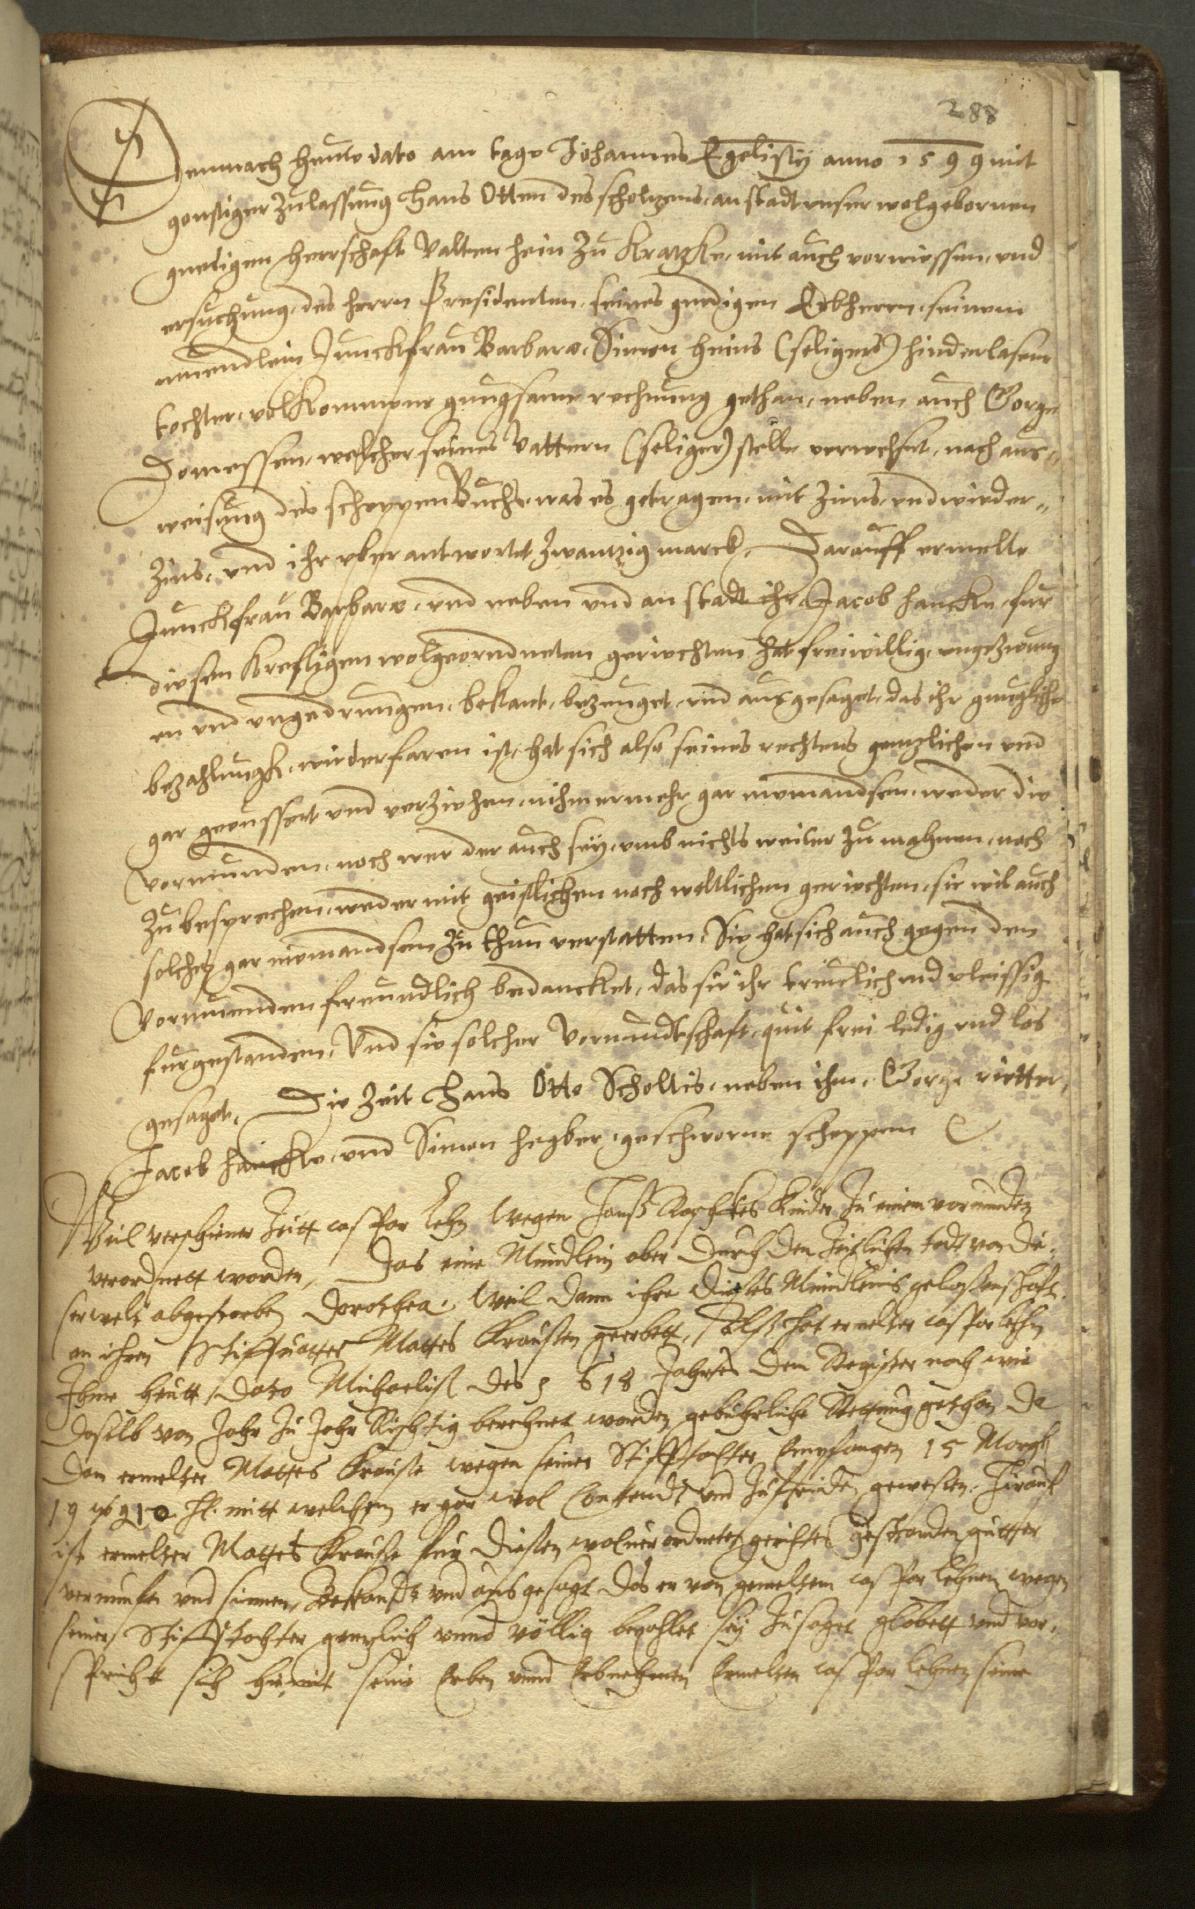 288
Demnach heute dato am tage Johannes Egelisty anno 1599 mit
gonstiger Zulassung Hans Otten des scholtzens, an stadt unser wolgebornen
gnedigen Herrschaft Valten hein zu Kratzke, mit auch vorwiessen, und
ersuchung, des herrn Presidenten, seines gnedigen Erbherrn, seinem
muendlein Junckfrau Barbara, Simon heins (seligers) hinderlasene
tochter, volkommene gungsame rechnung gethan, neben auch Gorge
Domessen, welcher seines Vattern (seliger) stelle verwesset, nach aus„
weisung des scheppen Buchs, was es getragen, mit zins, und wieder„
zins, und ihr uber antwortet zwantzig marck, Darauff ermelte
Junckfrau Barbara, und neben und an stadt ihr Jacob hancke, fur
diesen krefftigen wolgeorndneten gerichten hat freiwillig, ungezwung
en und ungedrungen, bekant, bezeuget, und ausgesaget, das ihr gnugliche
bezahlungk, wiederfaren ist, hat sich also seines rechtens gentzlichen und
gar geeussert und verziehen, nihmermehr gar niemandsen, weder die
Vormunden, noch wer der auch sey, umb nichts weiter zu mahnen, noch
zu besprechen, weder mit geistlichen noch weltlichen gerichten, sie wil auch
solches gar niemandsen zu thun verstatten, Sie hat sich auch gegen den
Vormuenden freundlich bedancket, das sie ihr treulich und vleissig
furgestanden, Und sie solcher Vormundtschaft, quit frei ledig und los
gesaget, Die Zeit Hans Otto Scholtis, neben ihm, Gorge rietter,
Jacob hancke, und Simon hegber, geschworne scheppen
Weil verschiener Zeitt Caspar Lehn wegen Hanß Kinder zu einem vormunden
verordnett worden, Das eine Mundlein aber durch den zeitlichen todt von die„
ser welt abgestorben Dorothea. Weil dann ihre dieses Mündleins gelaßenschaft
an ihren Stiffvatter Mattes Kraußen geerbett, hat ermelter Caspar Lehn
Ihme heutt dato Michaeliß des 1618 Jahres dem Register nach wie
daselb von Jahr zu Jahr Richtig berechnet worden, gebuhrliche Rettung gethan, Da
dan ermelter Mattes Krauße wegen seiner Stifftochter Empfangen 15 Margk
19 10 hl. mitt welchem er gar wol Contendt und zufrieden gewesen. Hirauf
ist ermelter Mattes Krauße fur diesen wolverordneten gerichtes gestanden, gutter
vernunft und sinnen, Bekandt und ausgesagt das er von gemeltem Caspar Lehnen wegen
seiner Stifftochter gentzlich unnd völlig bezahlet sey zusaget globett und ver„
spricht sich hiemit seine Erben unnd Erbnehmen Ermelten Caspar Lehnen seine